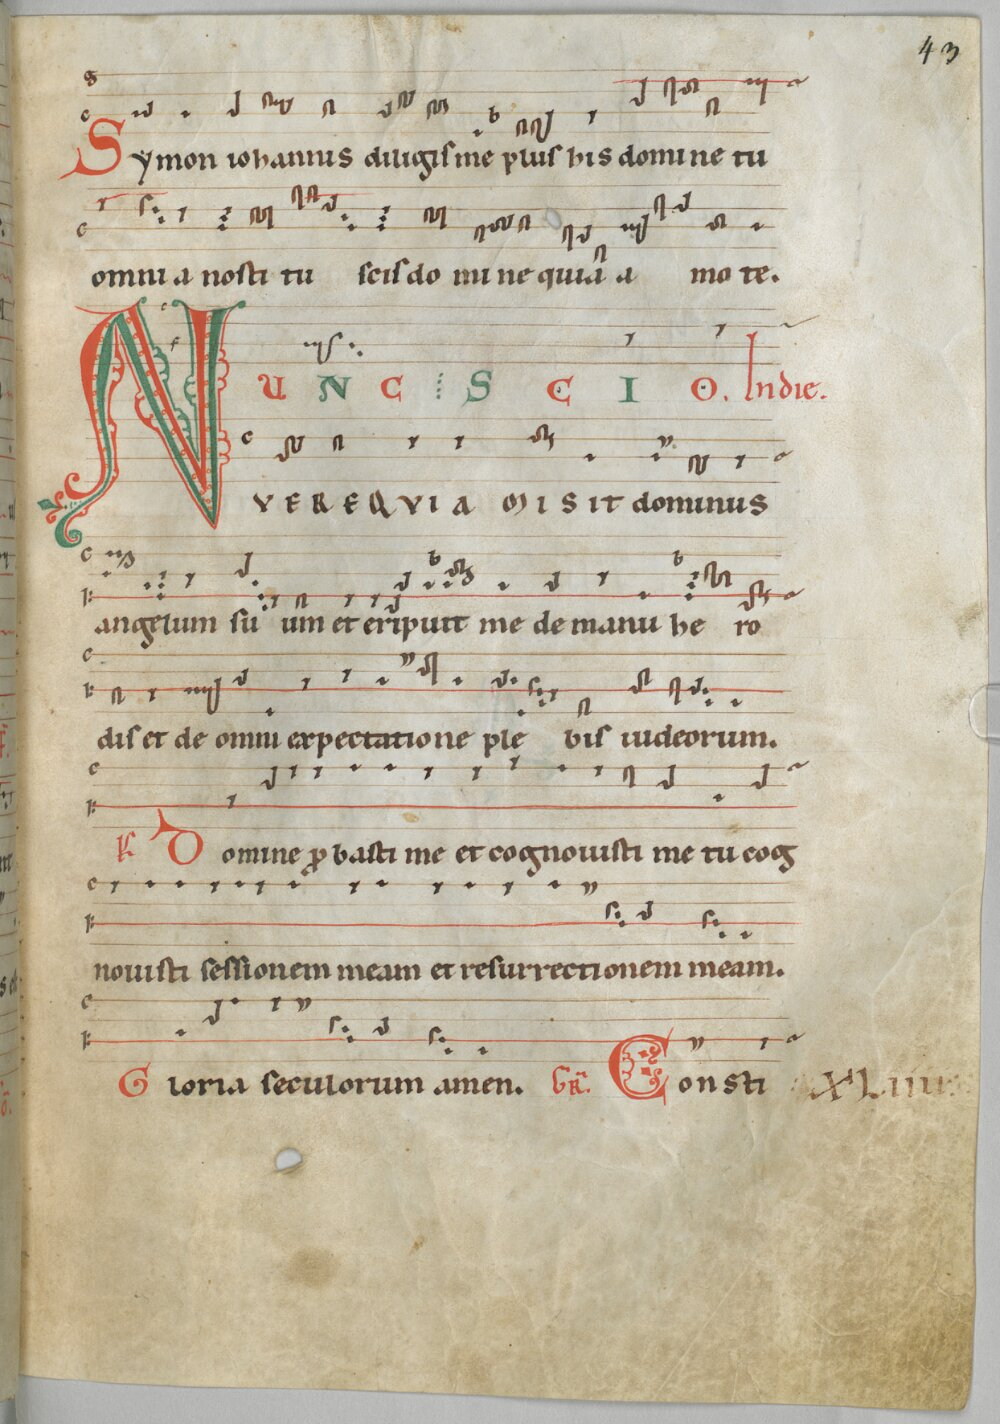 43
Symon iohannis diligis me plus his domine tu
omnia nosti tu scis domine quia amo te.
NUNC SCIO. In die.
VERE QVIA MISIT dominus
angelum suum et eripuit me de manu hero
dis et de omni expectatione plebis iudeorum.
Domine probasti me et cognouisti me tu cog
nouisti sessionem meam et resurrectionem meam.
Gloria seculorum amen. GR. Consti XLIIII